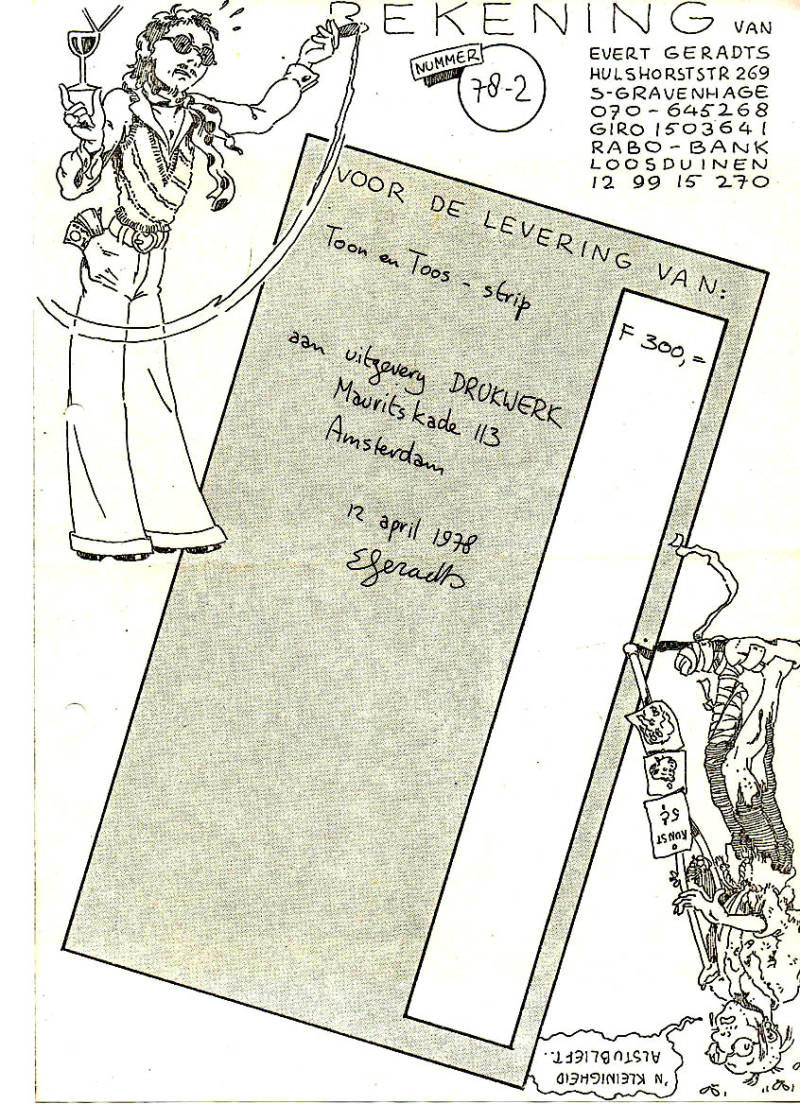 REKENING VAN
NUMMER
78-2
EVERT GERADTS
HULSHORSTSTR 269
S-GRAVENHAGE
070-645268
GIRO 1503641
RABO-BANK
LOOSDUINEN
12 99 15 270
VOOR DE LEVERING VAN:
Toon en Toos - strip
F 300,=
aan uitgevery DRUKWERK
Mauritskade 113
Amsterdam
12 april 1978
EGeradts
KUNST
5¢
'N KLEINIGHEID
ALSTUBLIEFT..